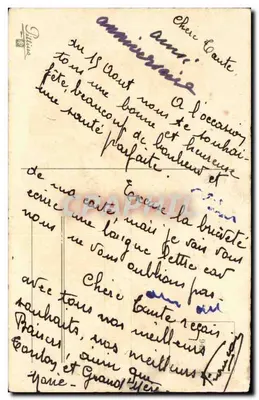 Chère Tante.
ainsi
anniversaire
A l'occasion
du 15 Aout nous te souhai-
tons une bonne et heureuse
fête, beaucoup de bonheur et
une santé parfaite.
Excuse la brièveté
de ma carte mais je vais vous
écrire une longue lettre car
nous ne vous oublions pas.
Chère Tante reçois
avec tous nos meilleurs
souhaits, nos meilleurs
Baisers ainsi que
Tonton et Grand Mère.